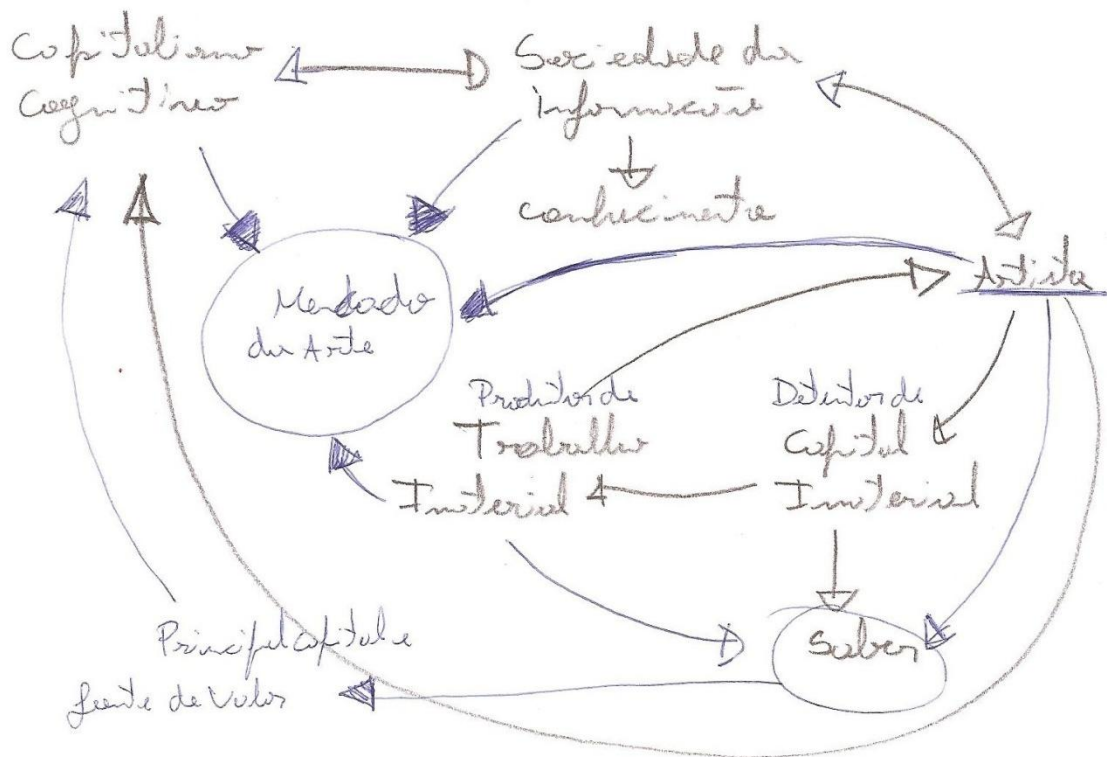 Capitalismo
Cognitivo
Sociedade da
Informação
Conhecimento
Artista
Mercado
da Arte
Produtor de
Trabalho
Imaterial
Detentor de
Capital
Imaterial
Saber
Principal capital e
fonte de Valor